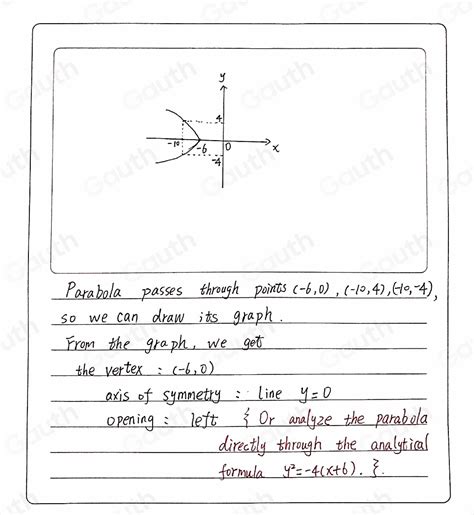 y
4
-10
-6
0
x
-4
Parabola passes through points (-6,0), (-10,4), (-10,-4),
so we can draw its graph.
From the graph, we get
the vertex : (-6,0)
axis of symmetry : line y=0
opening : left { Or analyze the parabola
directly through the analytical
formula y²=-4(x+6). }.
Gauth
Gauth
Gauth
Gauth
Gauth
Gauth
Gauth